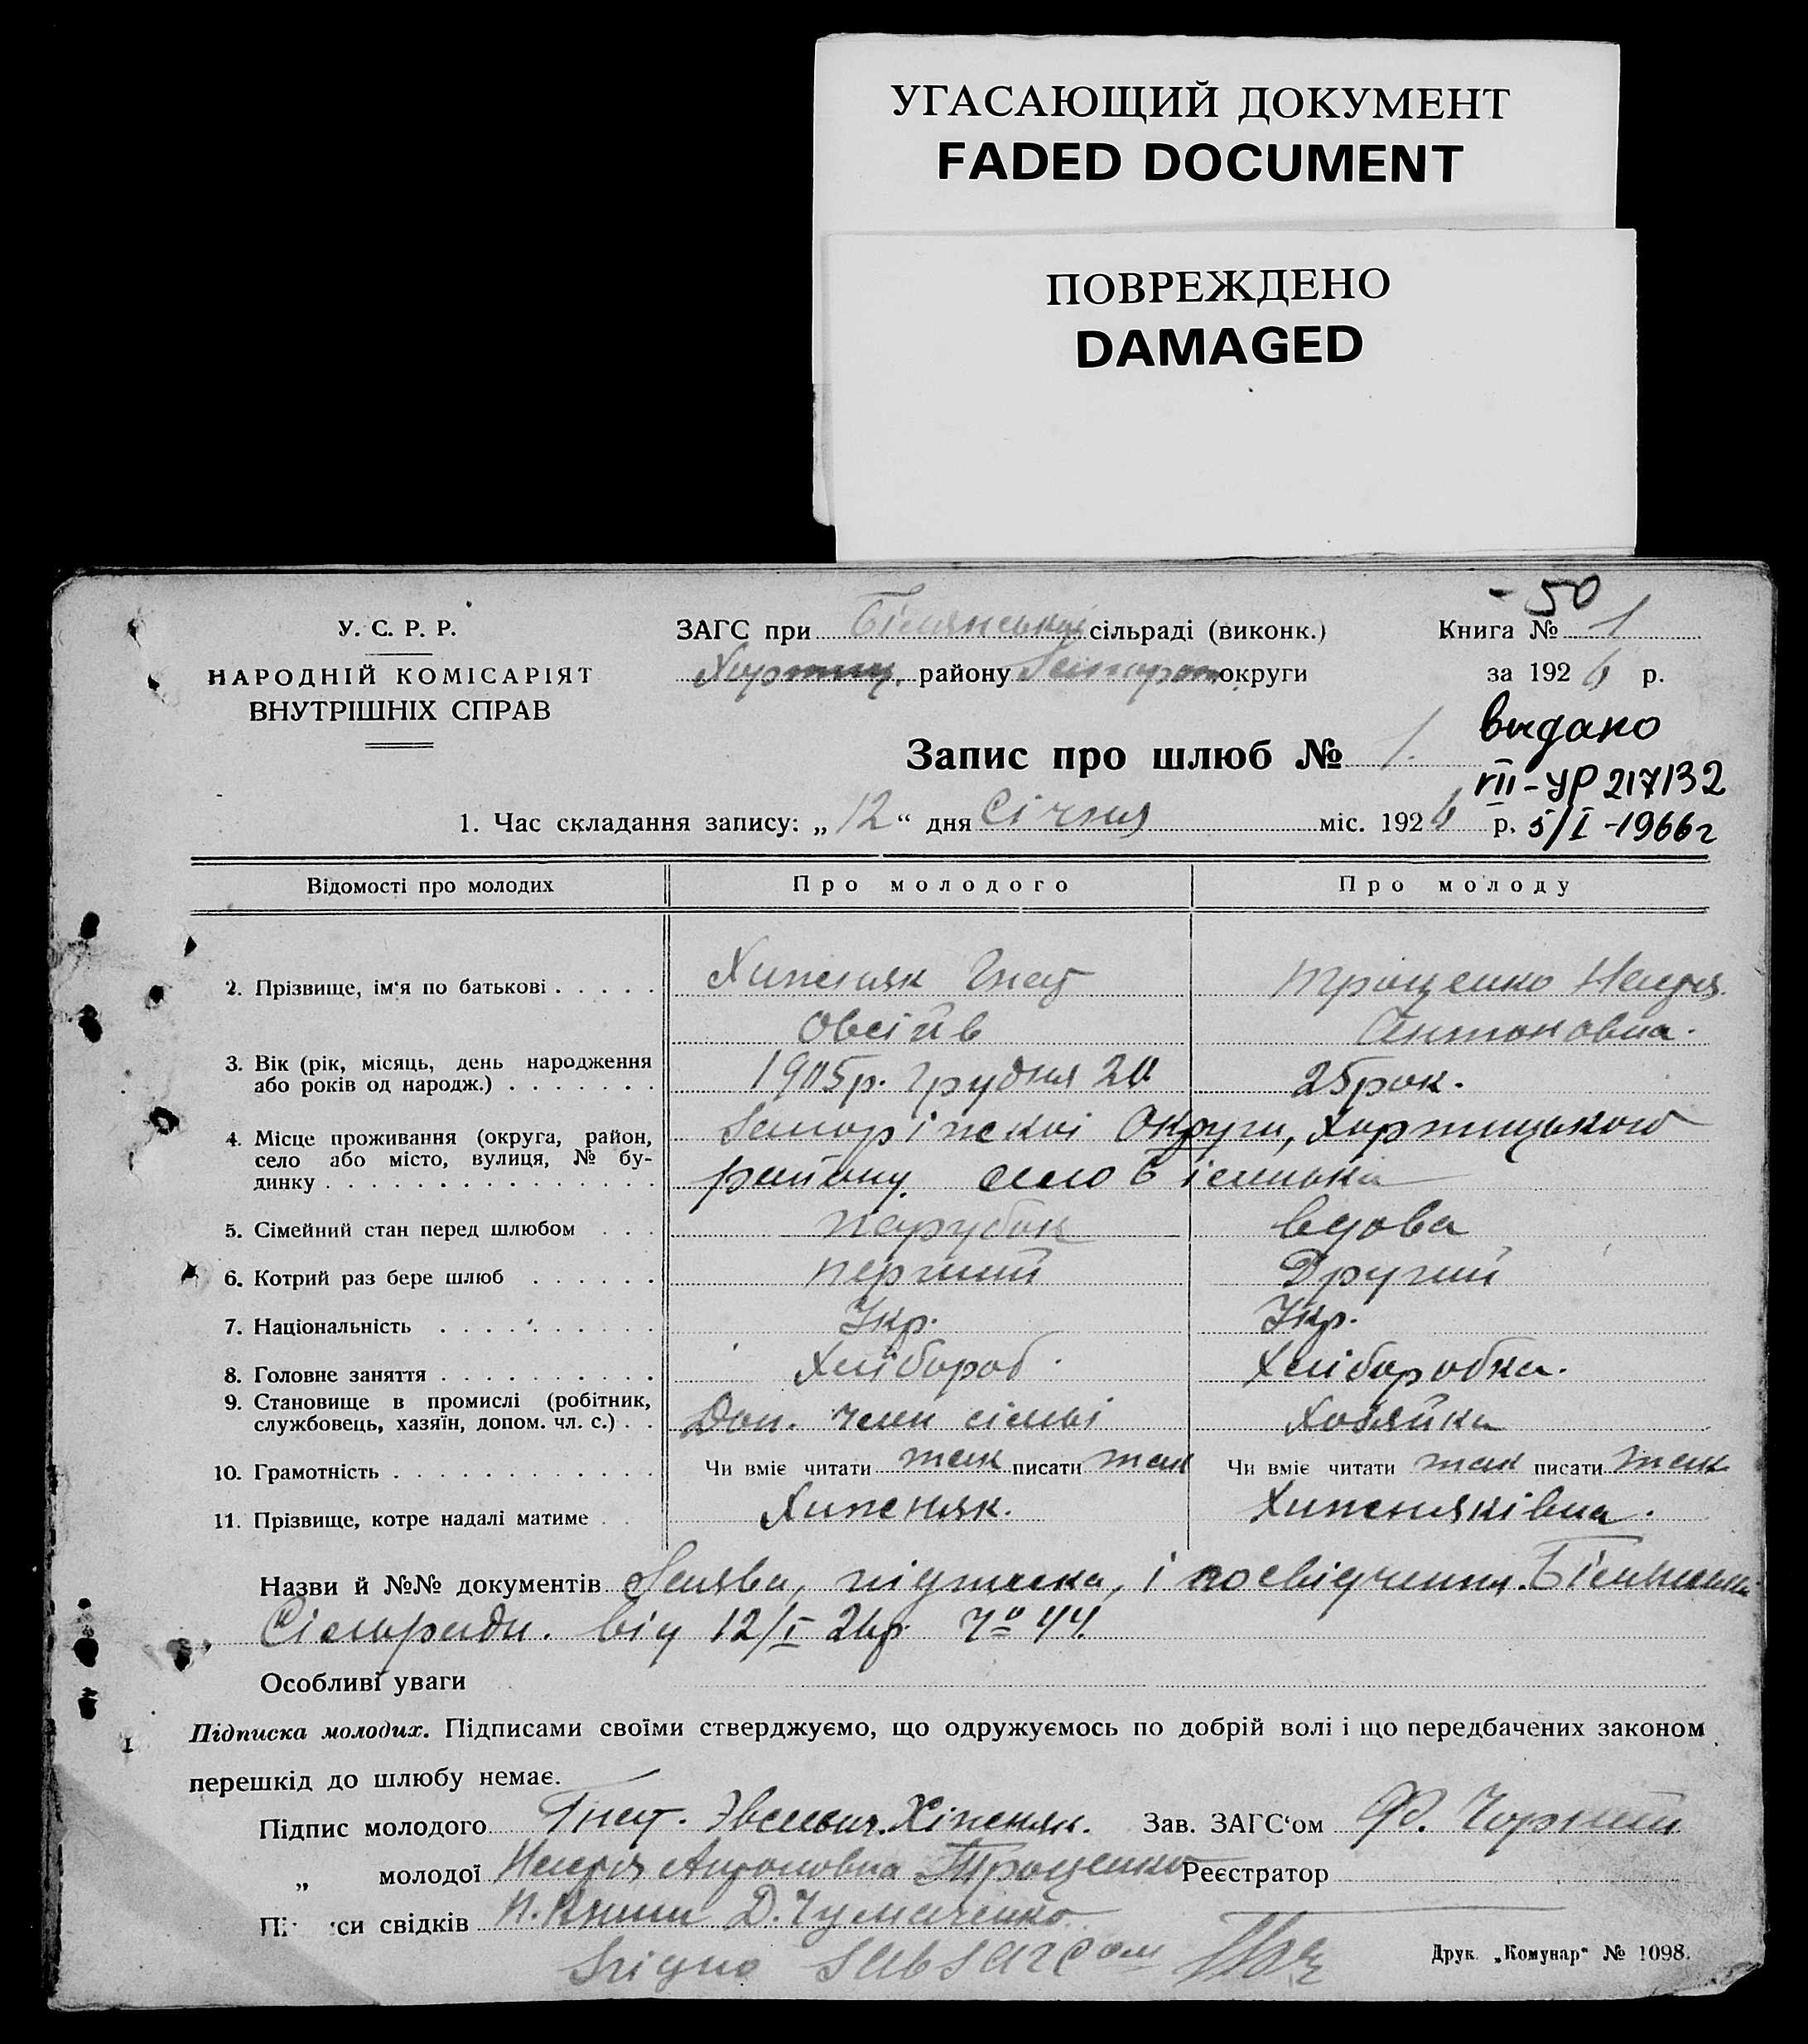 УГАСАЮЩИЙ ДОКУМЕНТ
FADED DOCUMENT
ПОВРЕЖДЕНО
DAMAGED
- 50
У. С. Р. Р.
НАРОДНІЙ КОМІСАРІЯТ
ВНУТРІШНІХ СПРАВ
ЗАГС при сільраді (виконк.)
району округи
Книга № 1
за 1926 р.
выдано
Запис про шлюб № 1.
УР 217132
1. Час складання запису: „12“ дня Січня міс. 1926 р.
5/I -1966г
Відомості про молодих Про молодого Про молоду
2. Прізвище, ім‘я по батькові Хиженяк Гнат Троценко Надія
Овсіїв Антоновна.
3. Вік (рік, місяць, день народження
або років од народж.) 1905р. Грудня 20 25 рок.
4. Місце проживання (округа, район,
село або місто, вулиця, № бу-
динку Округи, Хортицького
району. село
5. Сімейний стан перед шлюбом парубок вдова
6. Котрий раз бере шлюб перший Другий
7. Національність Укр. Укр.
8. Головне заняття Хлібороб. Хліборобка.
9. Становище в промислі (робітник,
службовець, хазяїн, допом. чл. с.) Доп. член сімьі Хозяйка
10. Грамотність Чи вміє читати так писати так Чи вміє читати так писати так
11. Прізвище, котре надалі матиме Хиженяк. Хиженяківна.
Назви й №№ документів Заява, підписка, і посвідчення.
Сільради. від 12/I 26р. 44.
Особливі уваги
Підписка молодих. Підписами своїми стверджуємо, що одружуємось по добрій волі і що передбачених законом
перешкід до шлюбу немає.
Підпис молодого Гнат. Хіженяк. Зав. ЗАГС‘ом Ф. Чорний
„ молодої Надія Антоновна Троценко Реєстратор
си свідків Д. Чумаченко
Друк. „Комунар“ № 1098.